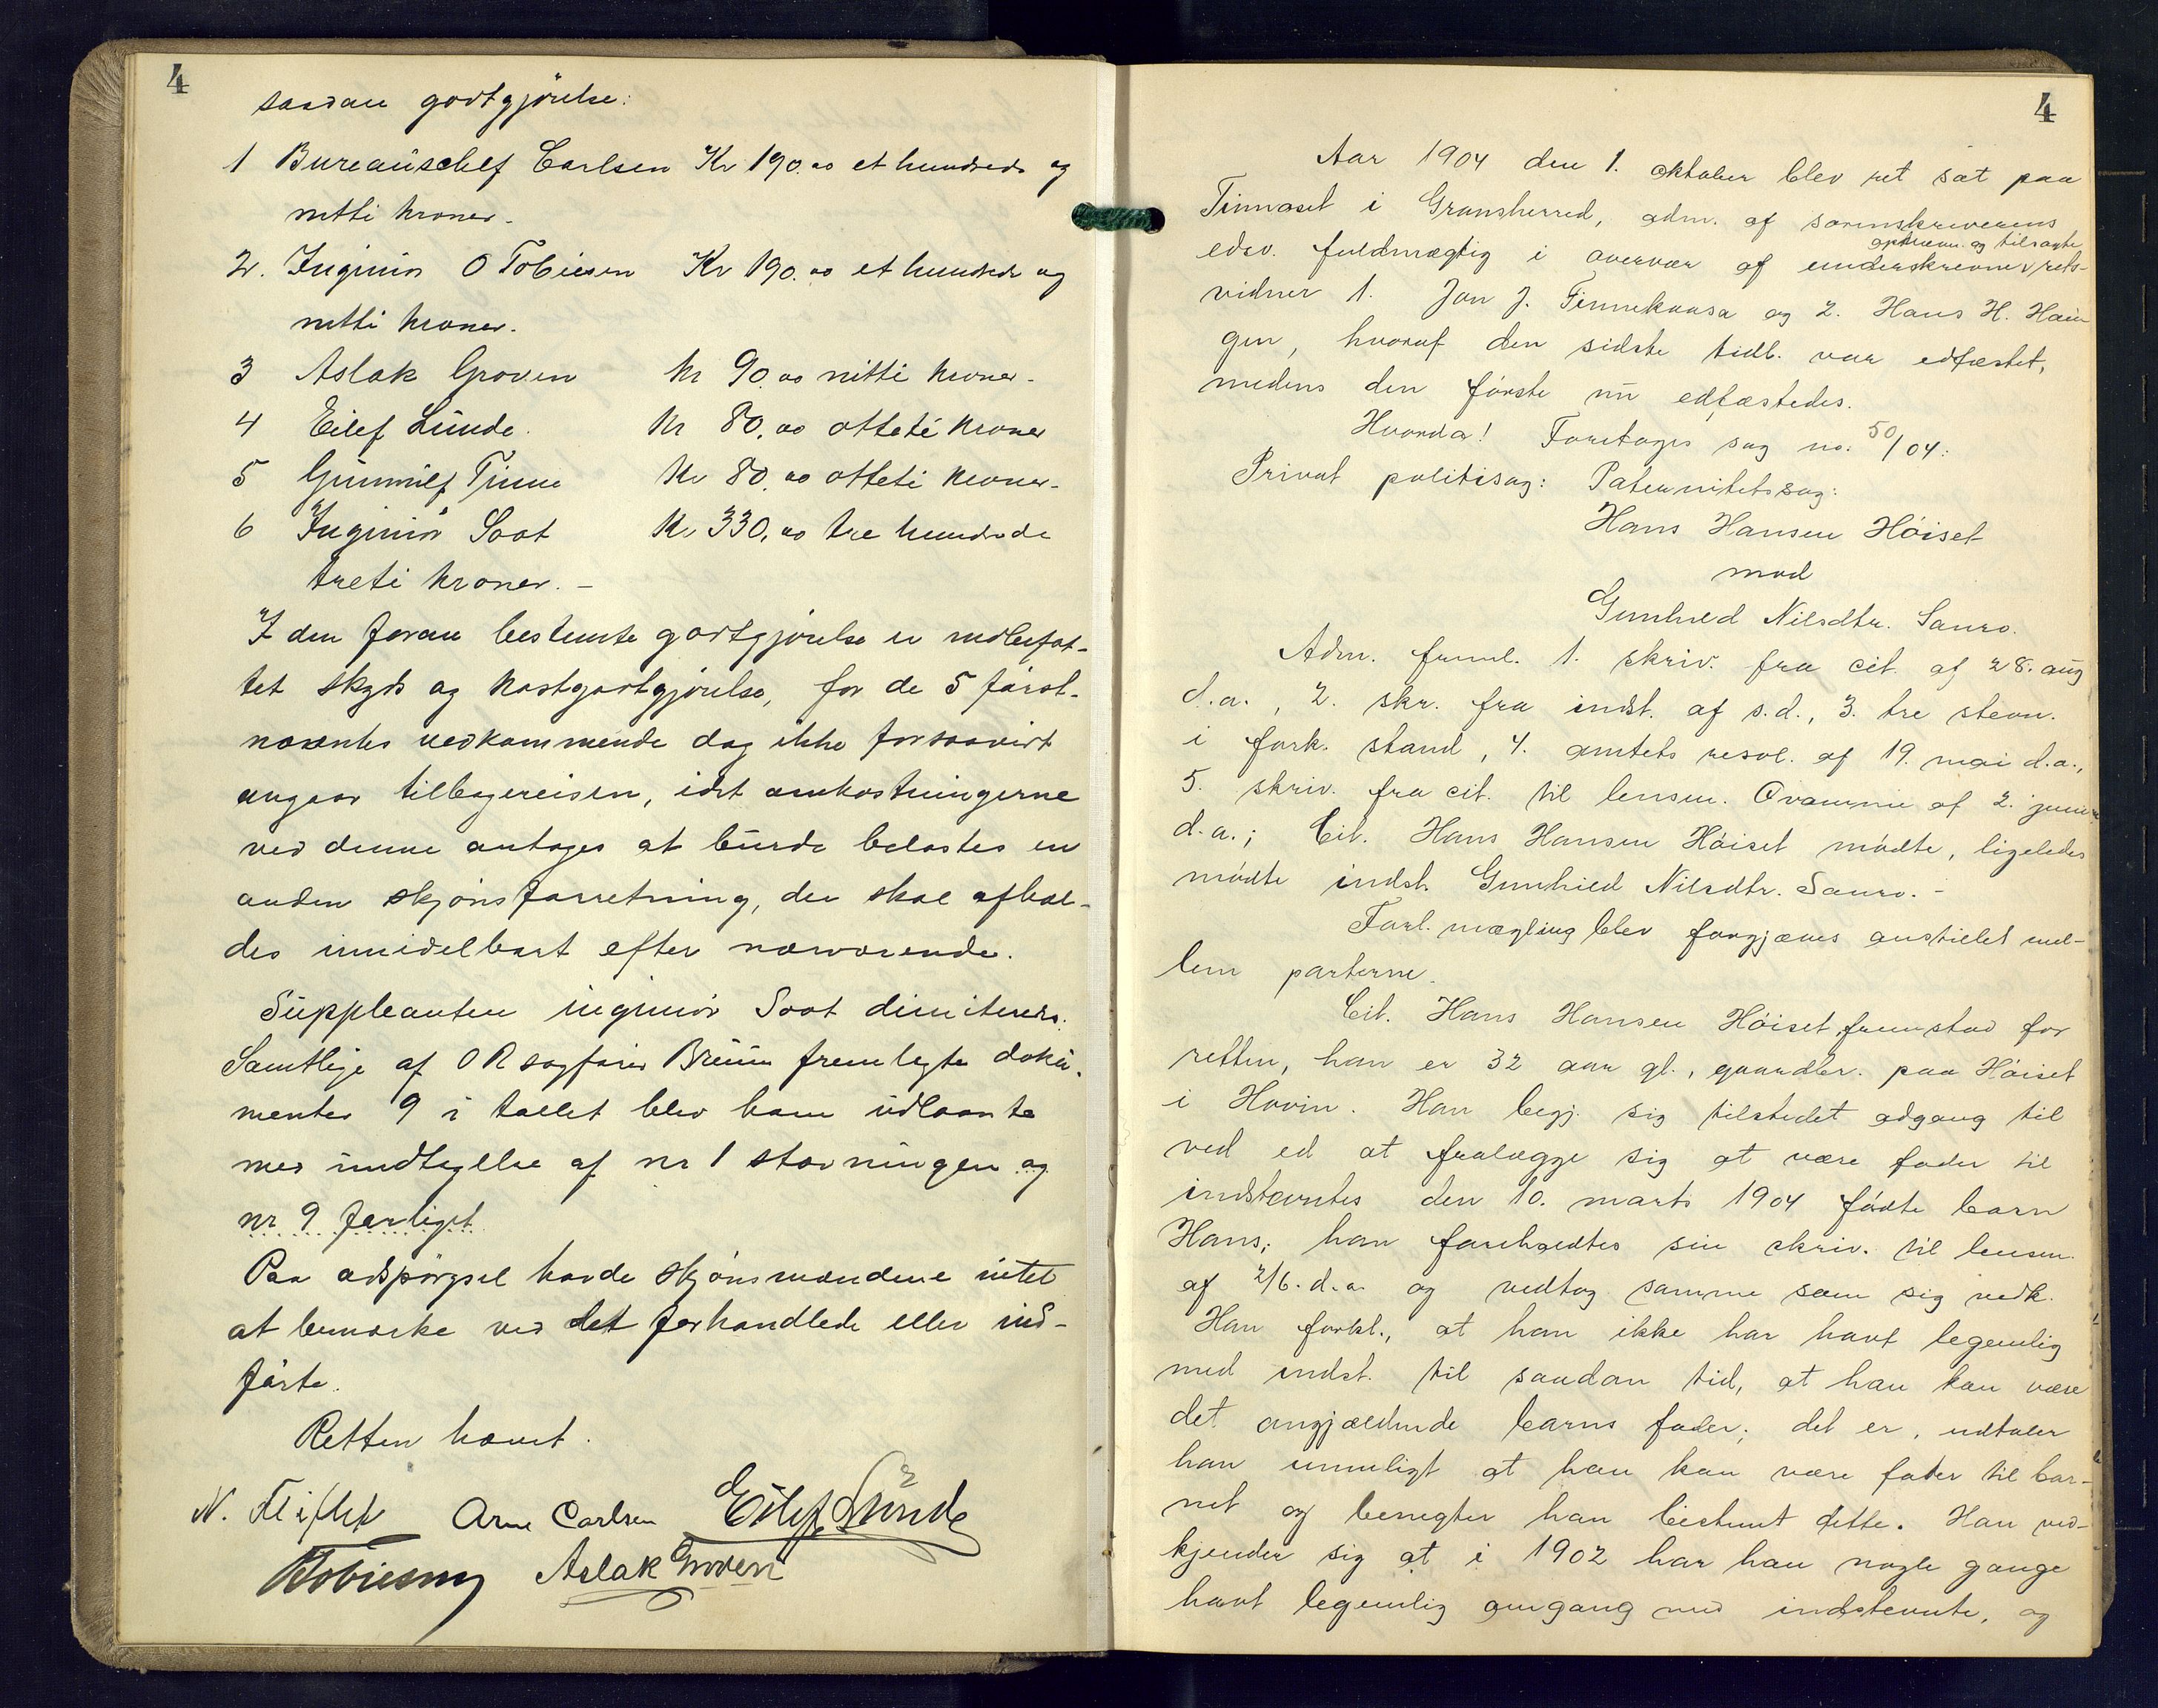 4
saadan godtgjörelse:
1 Bureauschef Carlsen Kr 190.00 et hundrede og
nitti kroner.
2. Ingeniör O Tobiesen Kr 190.00 et hundrede og
nitti kroner.
3 Aslak Groven Kr 90.00 nitti kroner.
4 Eilef Lunde. Kr 80.00 otteti kroner
5 Gunnulf Tinne Kr 80.00 otteti kroner.
6 Ingeniör Soot Kr 330.00 tre hundrede
treti kroner. –
I den foran bestemte godtgjörelse er indbefat-
tet skyds og kostgodtgjörelse, for de 5 först-
nævntes vedkommende dog ikke forsaavidt
angaar tilbagereisen, idet omkostningerne
ved denne antages at burde belastes en
anden skjönsforretning, der skal afhol-
des umidelbart efter nærværende.
Suppleanten ingeniör Soot dimiteredes.
Samtlige af OR sagförer Bruun fremlegte doku-
menter 9 i tallet blev ham udlaante
med undtagelse af nr 1 stævningen og
nr 9 forliget.
Paa adspörgsel havde skjönsmændene intet
at bemærke ved det forhandlede eller ind-
förte.
Retten hævet.
N. Arne Carlsen Eilef Lunde
OTobiesen Aslak Groven
4
Aar 1904 den 1. oktober blev ret sat paa
Tinnoset i Gransherred, adm. af sorenskriverens
opnævn. og tilsagte
edsv. fuldmægtig i overvær af underskrevne v rets-
vidner 1. Jon J. Tinnekaasa og 2. Hans H. Hau
gen, hvoraf den sidste tidl. var edfæstet,
medens den förste nu edfæstedes.
Hvorda! Foretoges sag no. 50/04:
Privat politisag: Paternitetssag:
Hans Hansen Höiset
mod
Gunhild Nilsdtr. Sauro.
Adm. freml. 1. skriv. fra cit. af 28. aug
d.a., 2. skr. fra indst. af s.d., 3. tre stevn.
i fork. stand, 4. amtets resol. af 19. mai d.a.,
5. skriv. fra cit. til lensm. Ovamme af 2. juni
d.a.; Cit. Hans Hansen Höiset mödte, ligeledes
mödte indst. Gunhild Nilsdtr. Sauro. –
Forl. mægling blev forgjæves anstillet mel-
lem parterne.
Cit. Hans Hansen Höiset fremstod for
retten, han er 32 aar gl., gaardbr. paa Höiset
i Hovin. Han begj. sig tilstedet adgang til
ved ed at fralægge sig at være fader til
indstævntes den 10. marts 1904 födte barn
Hans; han forehaedtes sin skriv. til lensm.
af 2/6. d.a. og vedtog samme som sig vedk.
Han forkl., at han ikke har havt legemlig
med indst. til saadan tid, at han kan være
det angjældende barns fader; det er, udtaler
han umuligt at han kan være fader til bar-
net og benegter han bestemt dette. Han ved-
kjender sig at i 1902 har han nogle gange
havt legemlig omgang med indstevnte, og